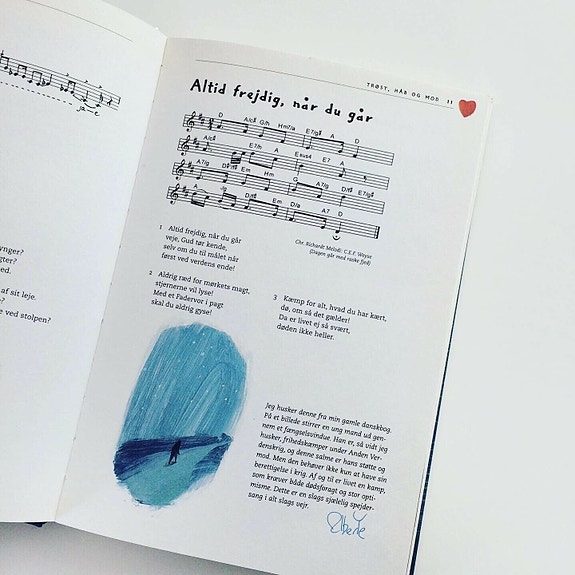 ja - e
ynger?
gter?
ed.
af sit leje.
?
e ved stolpen?
TRØST, HÅB OG MOD 11
Altid frejdig, når du går
D A/c♯ G/h Hm7/a E7/g♯ A D
A/c♯ E7/h A Esus4 E7 A
A7/g D/f♯ Em Hm G A7/g D/f♯ E7/g♯
A /g D/f♯ Em D/a A7 D
Chr. Richardt Melodi: C.E.F. Weyse
(Dagen går med raske fjed)
1 Altid frejdig, når du går
veje, Gud tør kende,
selv om du til målet når
først ved verdens ende!
2 Aldrig ræd for mørkets magt,
stjernerne vil lyse!
Med et Fadervor i pagt
skal du aldrig gyse!
3 Kæmp for alt, hvad du har kært,
dø, om så det gælder!
Da er livet ej så svært,
døden ikke heller.
Jeg husker denne fra min gamle danskbog.
På et billede stirrer en ung mand ud gen-
nem et fængselsvindue. Han er, så vidt jeg
husker, frihedskæmper under Anden Ver-
denskrig, og denne salme er hans støtte og
mod. Men den behøver ikke kun at have sin
berettigelse i krig. Af og til er livet en kamp,
som kræver både dødsforagt og stor opti-
misme. Dette er en slags sjælelig spejder-
sang i alt slags vejr.